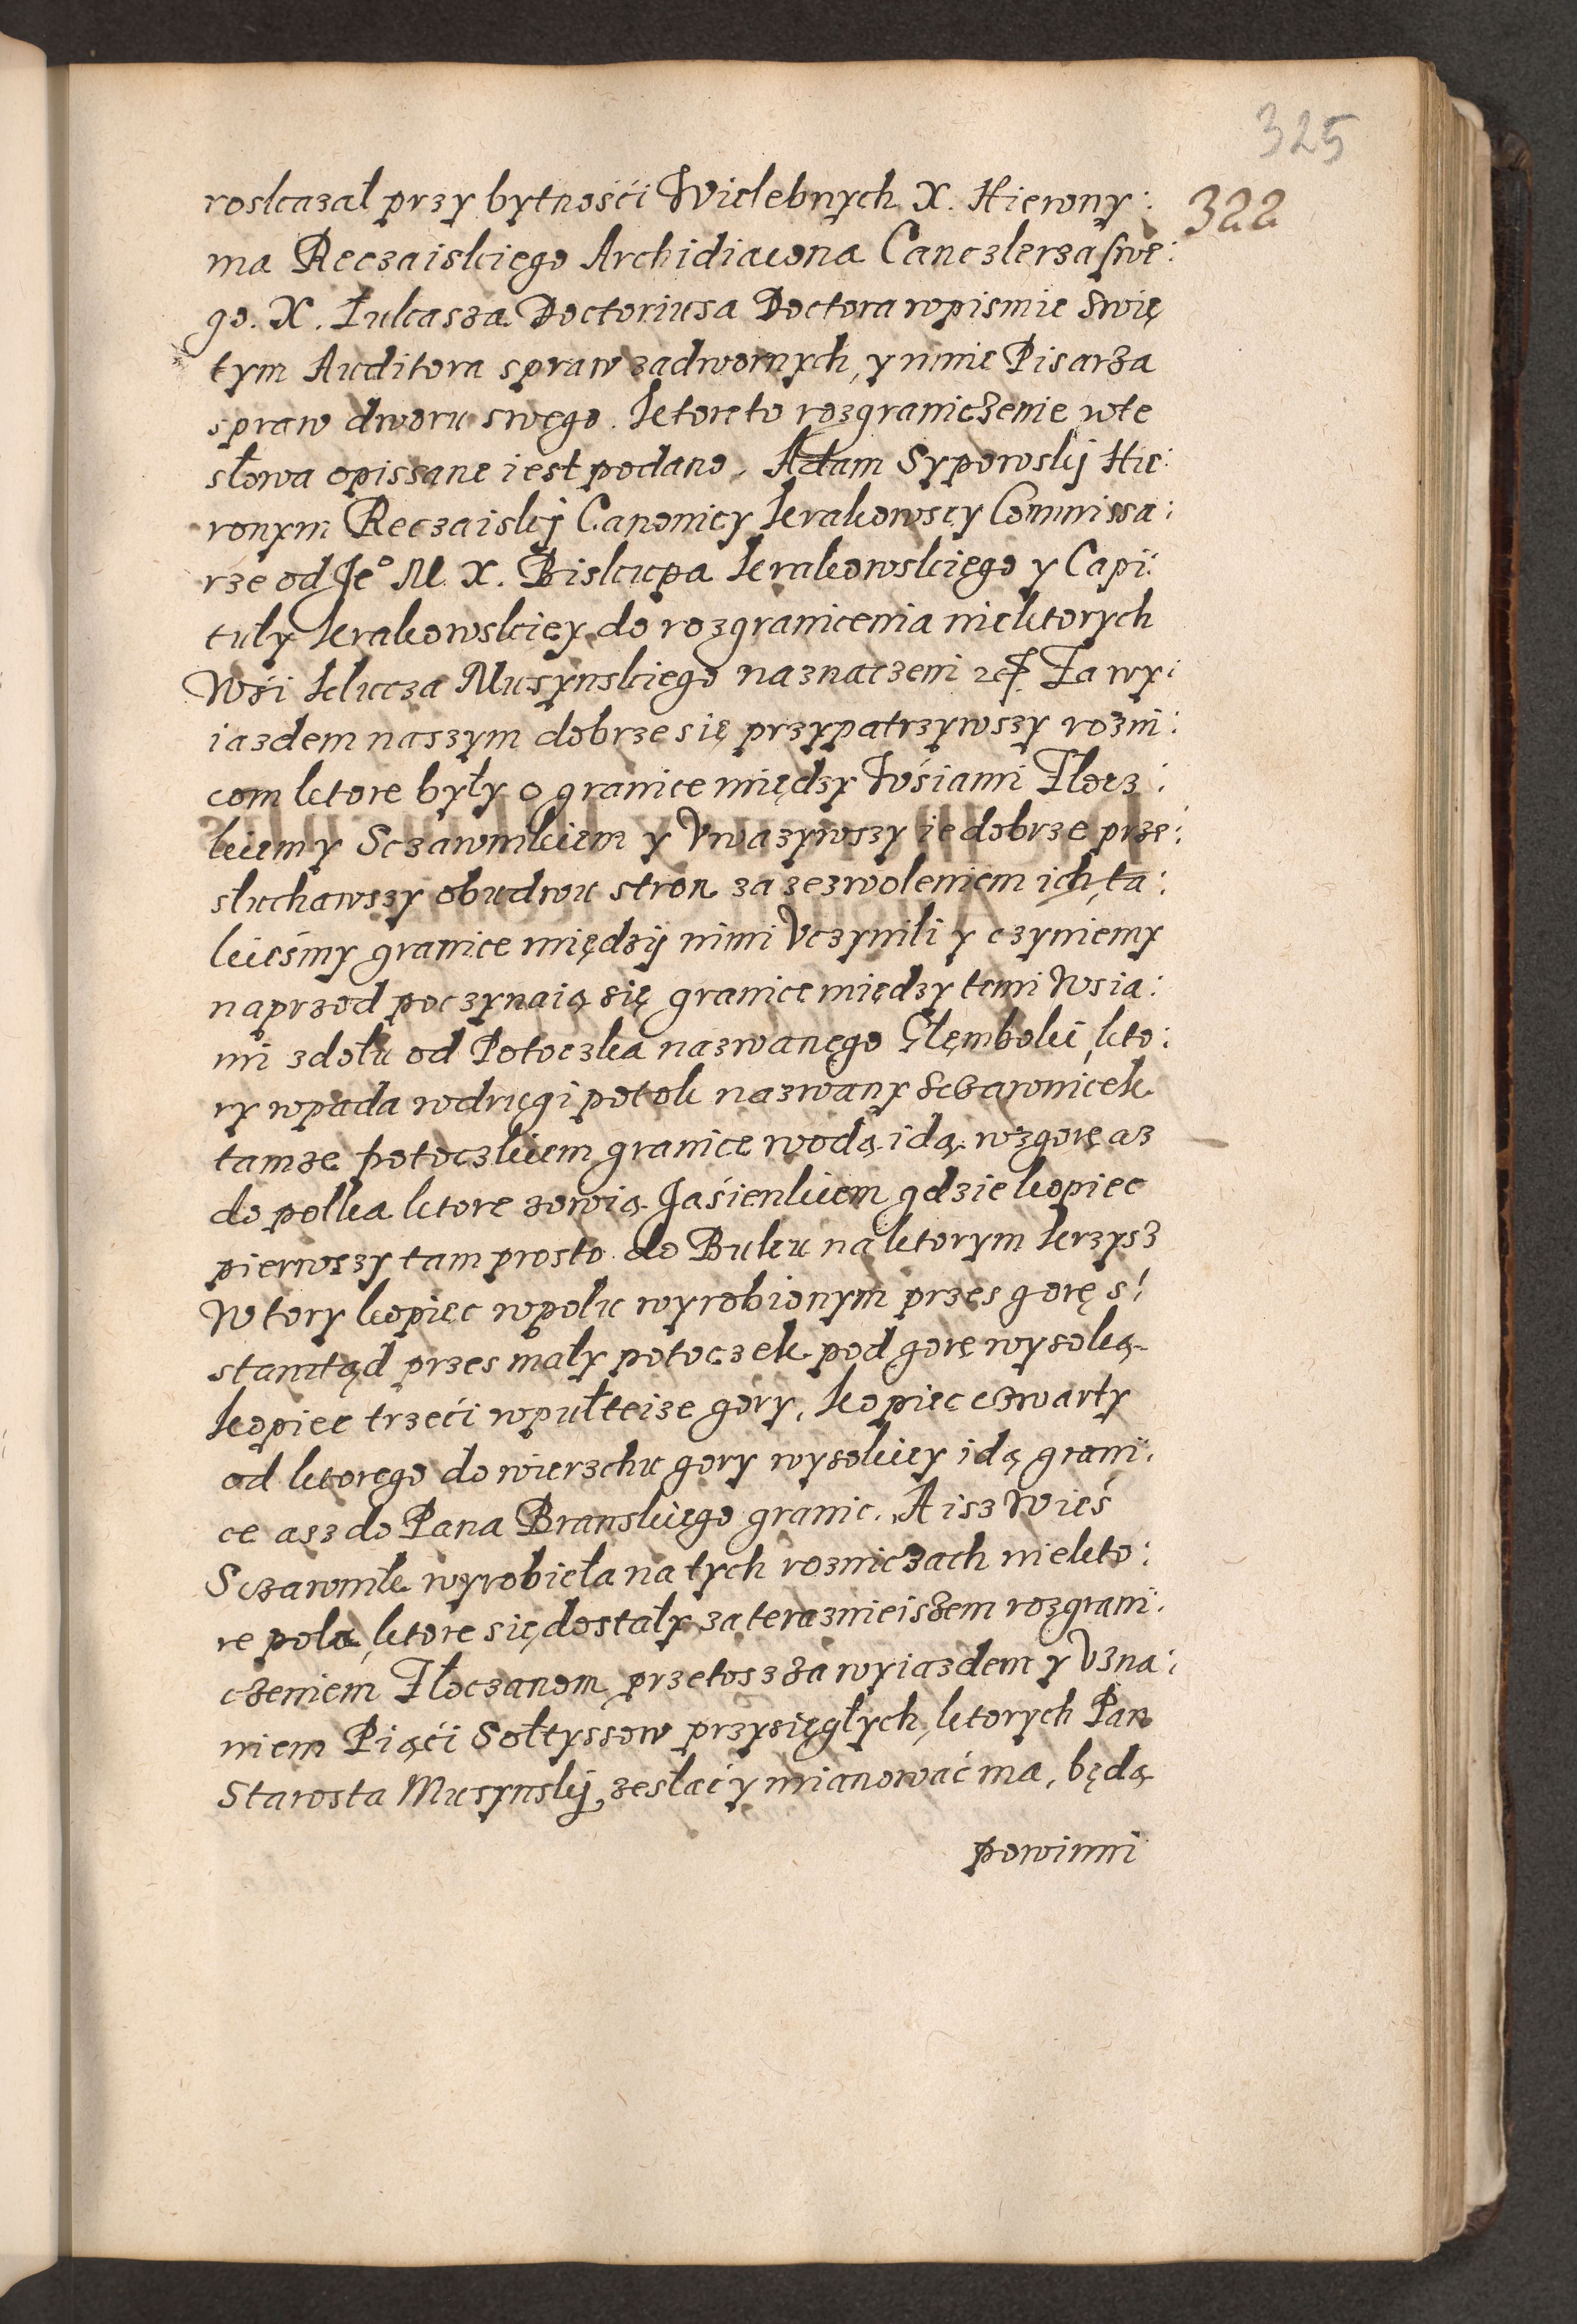 325
322
roskazał przy bytnośći Wielebnych X. Hierony:
ma Reczaiskiego Archidiacona Canczlerza swe:
go. X. Łukasza Doctoriusa Doctora wpismie Swię
tym Auditora spraw zadwornych, y mnie Pisarza
spraw dworu swego. Ktore to rozgraniczenie wte
słowa opissane iest podano. Adam Sypowskij Hie:
ronym Reczaiskij Canonicy Krakowscy Commissa:
rze od Je° M. X. Biskupa Krakowskiego y Capi:
tuły Krakowskiey do rozgranicenia niektorych
Wśi Klucza Musynskiego naznaczeni Za wy:
iazdem naszym dobrze się przypatrzywszy rożni:
com ktore były o granice między Wśiami Złocz:
kiem y Sczawnikiem y Vwazywszy ie dobrze prze:
słuchawszy obudwu stron za zezwoleniem ich, ta:
kieśmy granice międzij nimi Vczynili y czyniemy
naprzod poczynaią się granice między temi Wsia:
mi zdołu od Potoczka nazwanego Głęmboki, kto:
ry wpada wdrugi potok nazwany Sczawnicek
tamze potoczkiem granice wodą idą wzgorę az
do polka ktore zowią Jaśienkiem gdzie kopiec
pierwszy tam prosto do Buku na ktorym krzysz
Wtory kopiec wpolu wyrobionym przes gorę s!
stamtąd przes mały potoczek pod gorę wysoką
kopiec trzeći wpułteize gory, kopiec czwarty
od ktorego do wierzchu gory wysokiey idą grani:
ce asz do Pana Branskiego granic. A isz Wieś
Sczawnik wyrobieła na tych rozniczach niekto:
re pola, ktore się dostały za teraznieiszem rozgrani:
czeniem Złoczanom przetosz za wyiazdem y Vzna:
niem Piąći Sołtyssow przysięgłych, ktorych Pan
Starosta Musynskij zesłać y mianować ma, będą
powinni